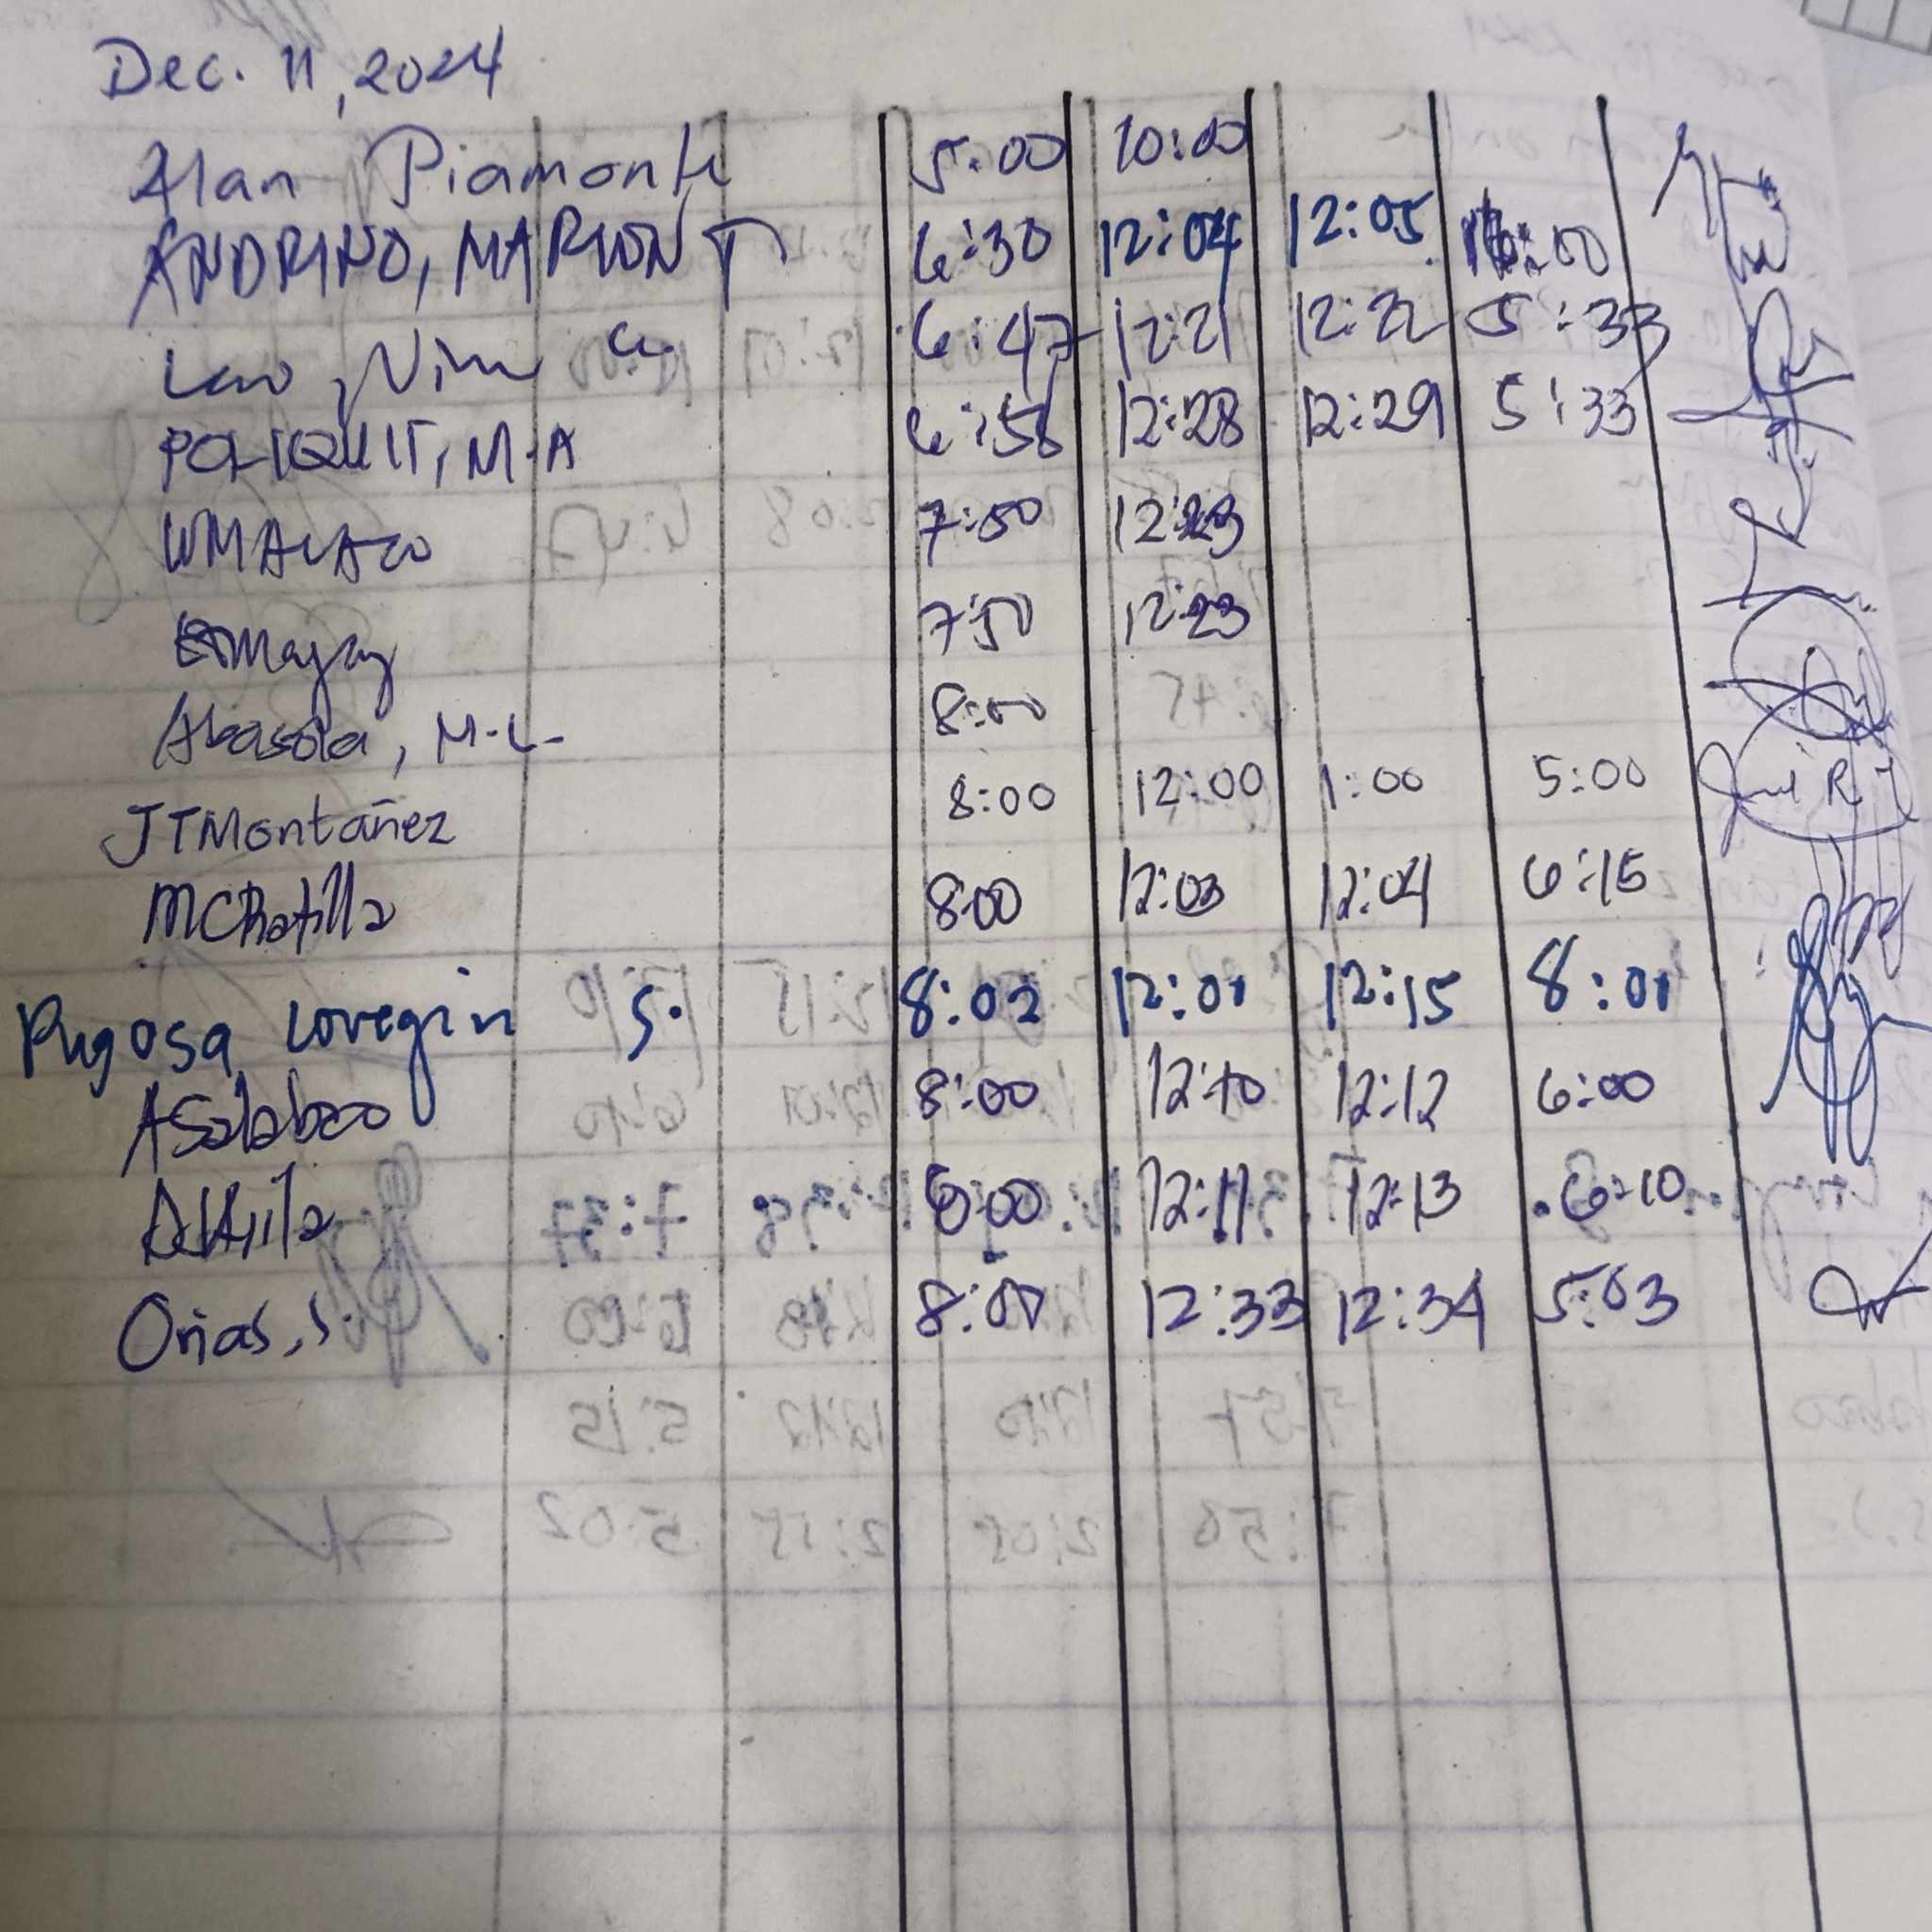 Dec. 11, 2024
Alan Piamonte 5:00 10:00
ANDRINO, MARION T 6:30 12:04 12:05 :00
Leo, Nim C. 6:47 12:21 12:22 5:33
POLIQUIT, M.A 6:58 12:28 12:29 5:33
WMALACO 7:50 12:23
7:50 12:23
Abasola, M.L. 8:00
JTMontañez 8:00 12:00 1:00 5:00
MCRatilla 8:00 12:03 12:04 6:15
Pugosa Lovegin S. 8:02 12:01 12:15 8:01
ASalabao 8:00 12:10 12:12 6:00
12:11 12:13 6:10
Oñas, S. 8:00 12:33 12:34 5:03